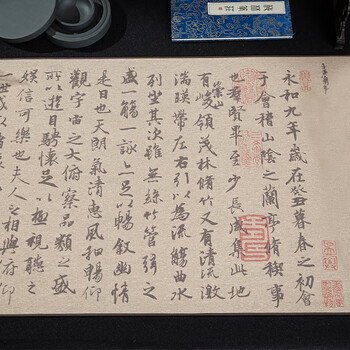 永和九年歲在癸丑暮春之初會
于會稽山陰之蘭亭脩稧事
也群賢畢至少長咸集此地
有崇山峻領茂林脩竹又有清流激
湍暎帶左右引以為流觴曲水
列坐其次雖無絲竹管弦之
盛一觴一詠亦足以暢敘幽情
是日也天朗氣清惠風和暢仰
觀宇宙之大俯察品類之盛
所以遊目騁懷足以極視聽之
娛信可樂也夫人之相與俯仰
一世或